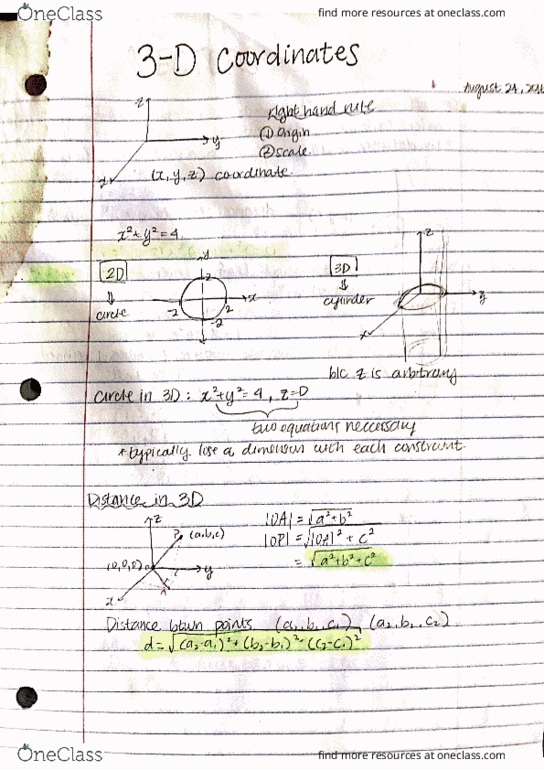 OneClass
find more resources at oneclass.com
3-D Coordinates
August 24, 201
z
y
x
Right hand rule
① origin
② scale
(x, y, z) coordinate
x²+y²=4
2D
⇓
circle
y
2
x
-2
2
-2
3D
⇓
cylinder
z
y
x
b/c z is arbitrary
Circle in 3D: x²+y²=4, z=0
two equations neccessary
*typically lose a dimension with each constraint
Distance in 3D
z
P (a,b,c)
(0,0,0)
y
x
A
|OA| = √a²+b²
|OP| = √|OA|²+c²
= √a²+b²+c²
Distance btwn points (a₁,b₁,c₁), (a₂,b₂,c₂)
d=√(a₂-a₁)²+(b₂-b₁)²+(c₂-c₁)²
OneClass
find more resources at oneclass.com